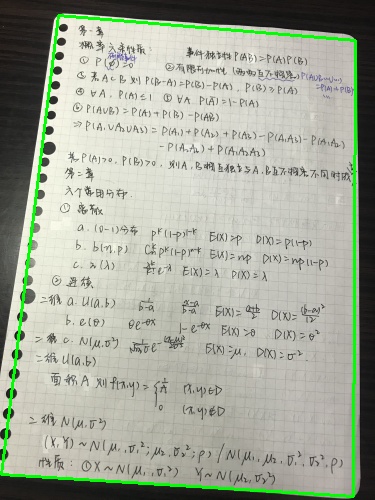 第一章
概率入条性质 事件独立性 P(AB)=P(A)P(B)
① P(∅)=0 ② 有限可加性 (两两互不相容) P(A∪B∪…)=P(A)+P(B)…
③ 若A⊂B 则P(B-A)=P(B)-P(A), P(B)≥P(A)
④ ∀A, P(A)≤1 ⑤ ∀A. P(Ā)=1-P(A)
⑥ P(A∪B)=P(A)+P(B)-P(AB)
⇒P(A₁∪A₂∪A₃)=P(A₁)+P(A₂)+P(A₃)-P(A₁A₂)-P(A₁A₃)
-P(A₂A₃)+P(A₁A₂A₃)
若P(A)>0, P(B)>0, 则A,B相互独立与A,B互不相容不同时成
第二章
六个常用分布.
① 离散
a. (0-1)分布 pᵏ(1-p)¹⁻ᵏ E(X)=p D(X)=p(1-p)
b. b(n,p) Cₙᵏpᵏ(1-p)ⁿ⁻ᵏ E(X)=np D(X)=np(1-p)
c. π(λ) λᵏ/k! e^-λ E(X)=λ D(X)=λ
② 连续
二维 a. U(a,b) 1/(b-a) (x-a)/(b-a) E(X)=(a+b)/2 D(X)=(b-a)²/12
b. e(θ) θe^-θx 1-e^-θx E(X)=θ D(X)=θ²
二维 c. N(μ,σ²) E(X)=μ, D(X)=σ².
二维U(a,b)
面积A 则f(x,y)={1/A (x,y)∈D
0 (x,y)∉D
二维N(μ,σ²)
(X,Y)~N(μ₁,σ₁²;μ₂,σ₂²;ρ)/N(μ₁,μ₂,σ₁²,σ₂²,ρ)
性质: ①X~N(μ₁,σ₁²) Y~N(μ₂,σ₂²)